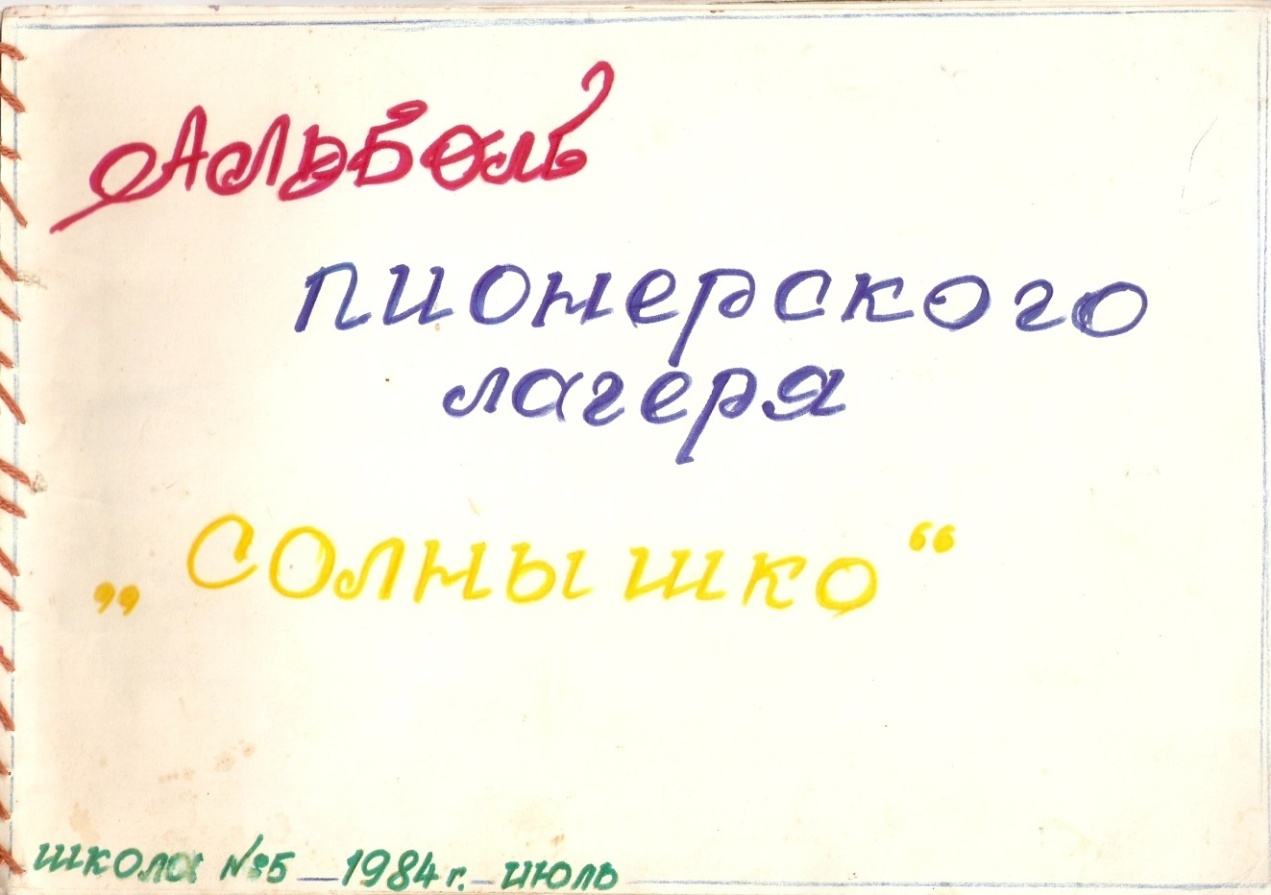 Альбом
пионерского
лагеря
„Солнышко“
школа №5 – 1984 г. – июль